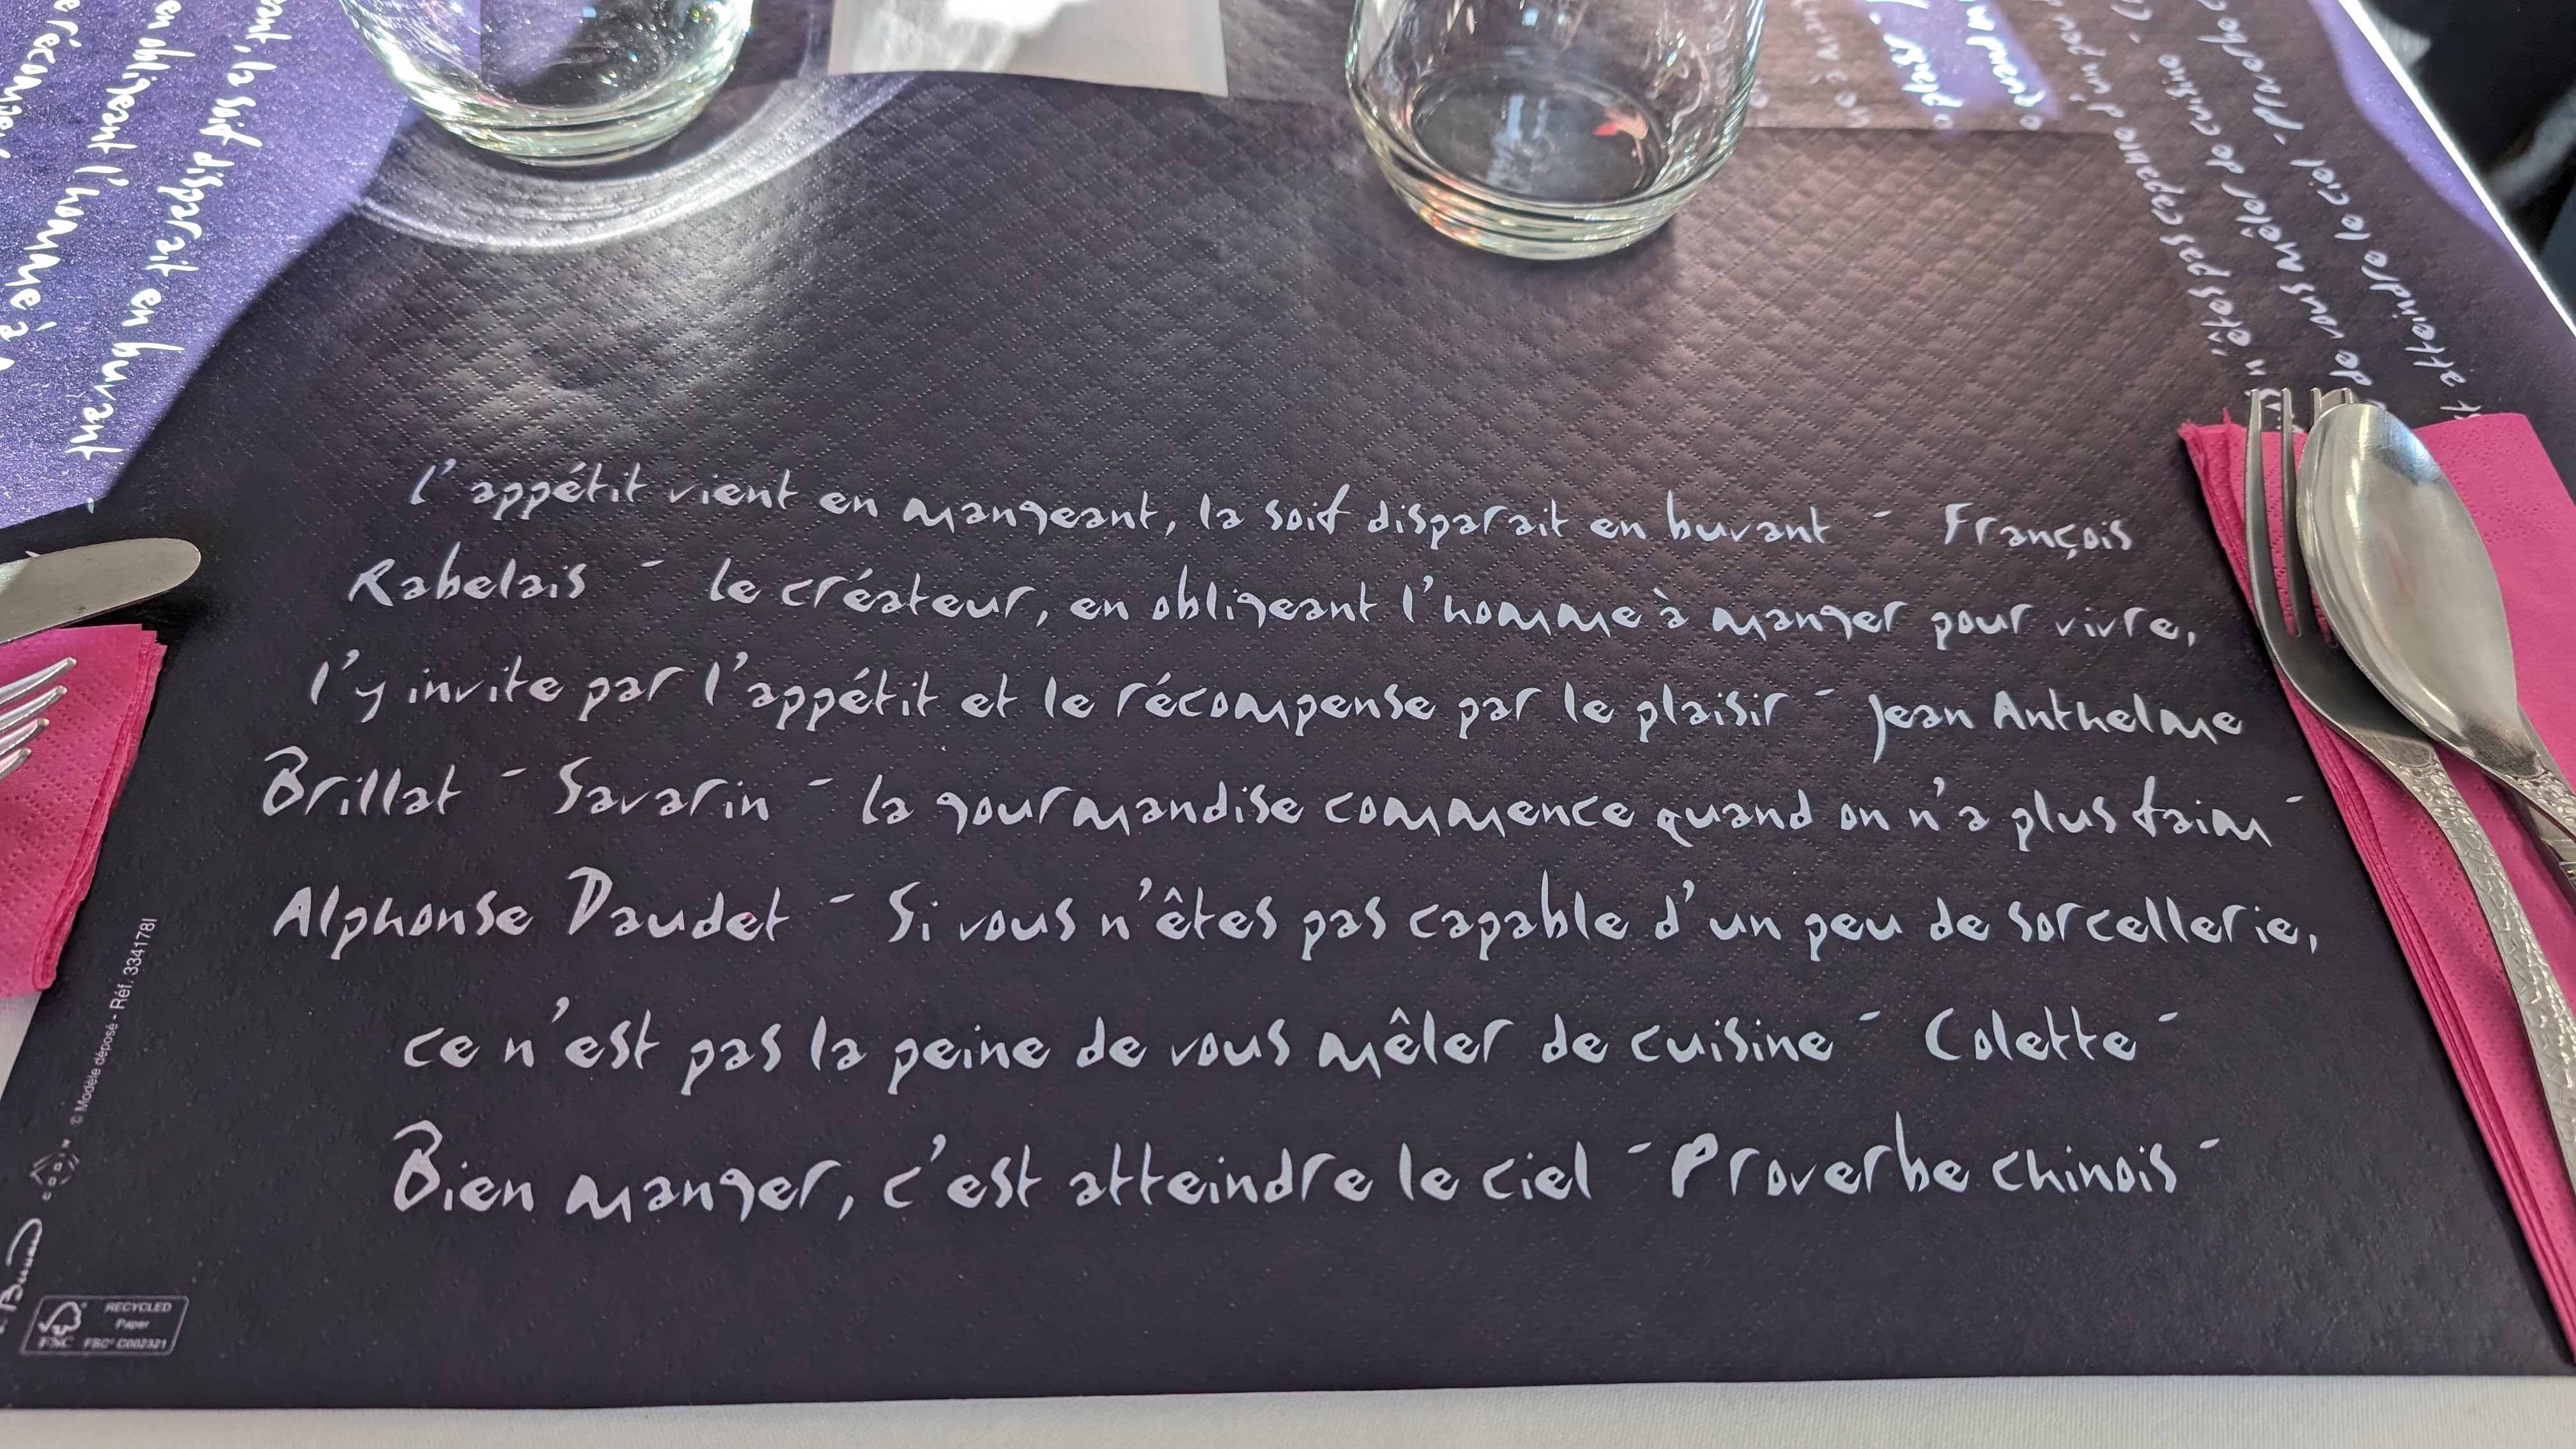 l'appétit vient en mangeant, la soif disparait en buvant - François
Rabelais - le créateur, en obligeant l'homme à manger pour vivre,
l'y invite par l'appétit et le récompense par le plaisir - Jean Anthelme
Brillat - Savarin - la gourmandise commence quand on n'a plus faim -
Alphonse Daudet - Si vous n'êtes pas capable d'un peu de sorcellerie,
ce n'est pas la peine de vous mêler de cuisine - Colette -
Bien manger, c'est atteindre le ciel - Proverbe chinois -
© Modèle déposé - Réf. 334178I
RECYCLED
Paper
FSC FSC® C002321
la soif disparait en buvant -
en obligeant l'homme à
n'êtes pas capable d'un peu
de vous mêler de cuisine -
atteindre le ciel - Proverbe